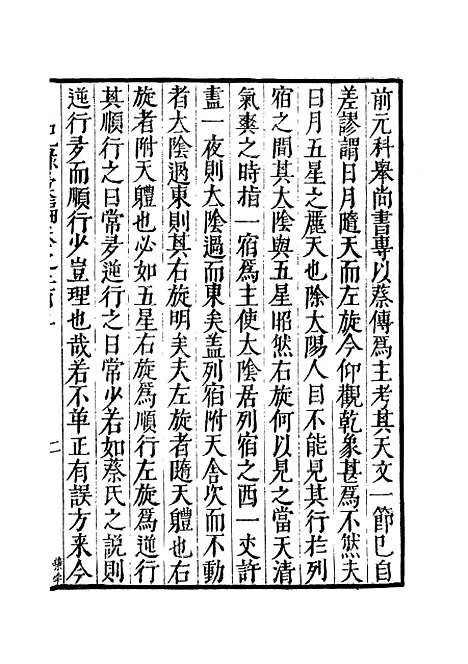 前元科舉尚書專以蔡傳爲主考其天文一節已自
差謬謂日月隨天而左旋今仰觀乾象甚爲不然夫
日月五星之麗天也除太陽人目不能見其行於列
宿之間其太陰與五星昭然右旋何以見之當天清
氣爽之時指一宿爲主使太陰居列宿之西一丈許
盡一夜則太陰過而東矣蓋列宿附天舍次而不動
者太陰過東則其右旋明矣夫左旋者隨天體也右
旋者附天體也必如五星右旋爲順行左旋爲逆行
其順行之日常多逆行之日常少若如蔡氏之說則
逆行多而順行少豈理也哉若不革正有誤方來今
二